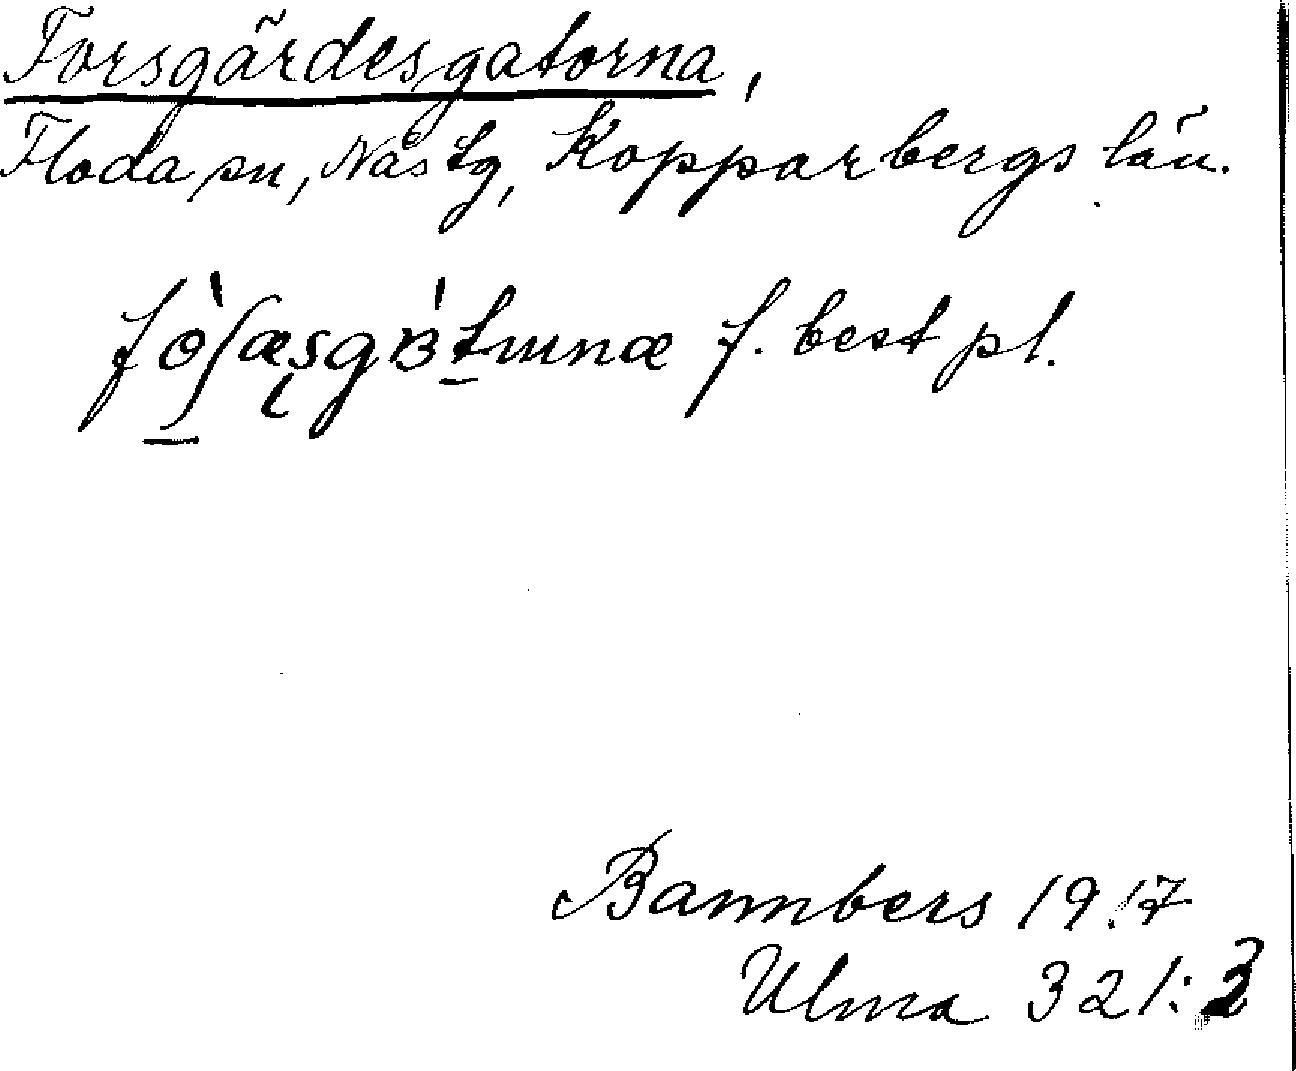 Forsgärdesgatorna,
Floda sn, Nås tg, Kopparbergs län.
f. best pl.
Bannbers 1917
Ulma 321:3